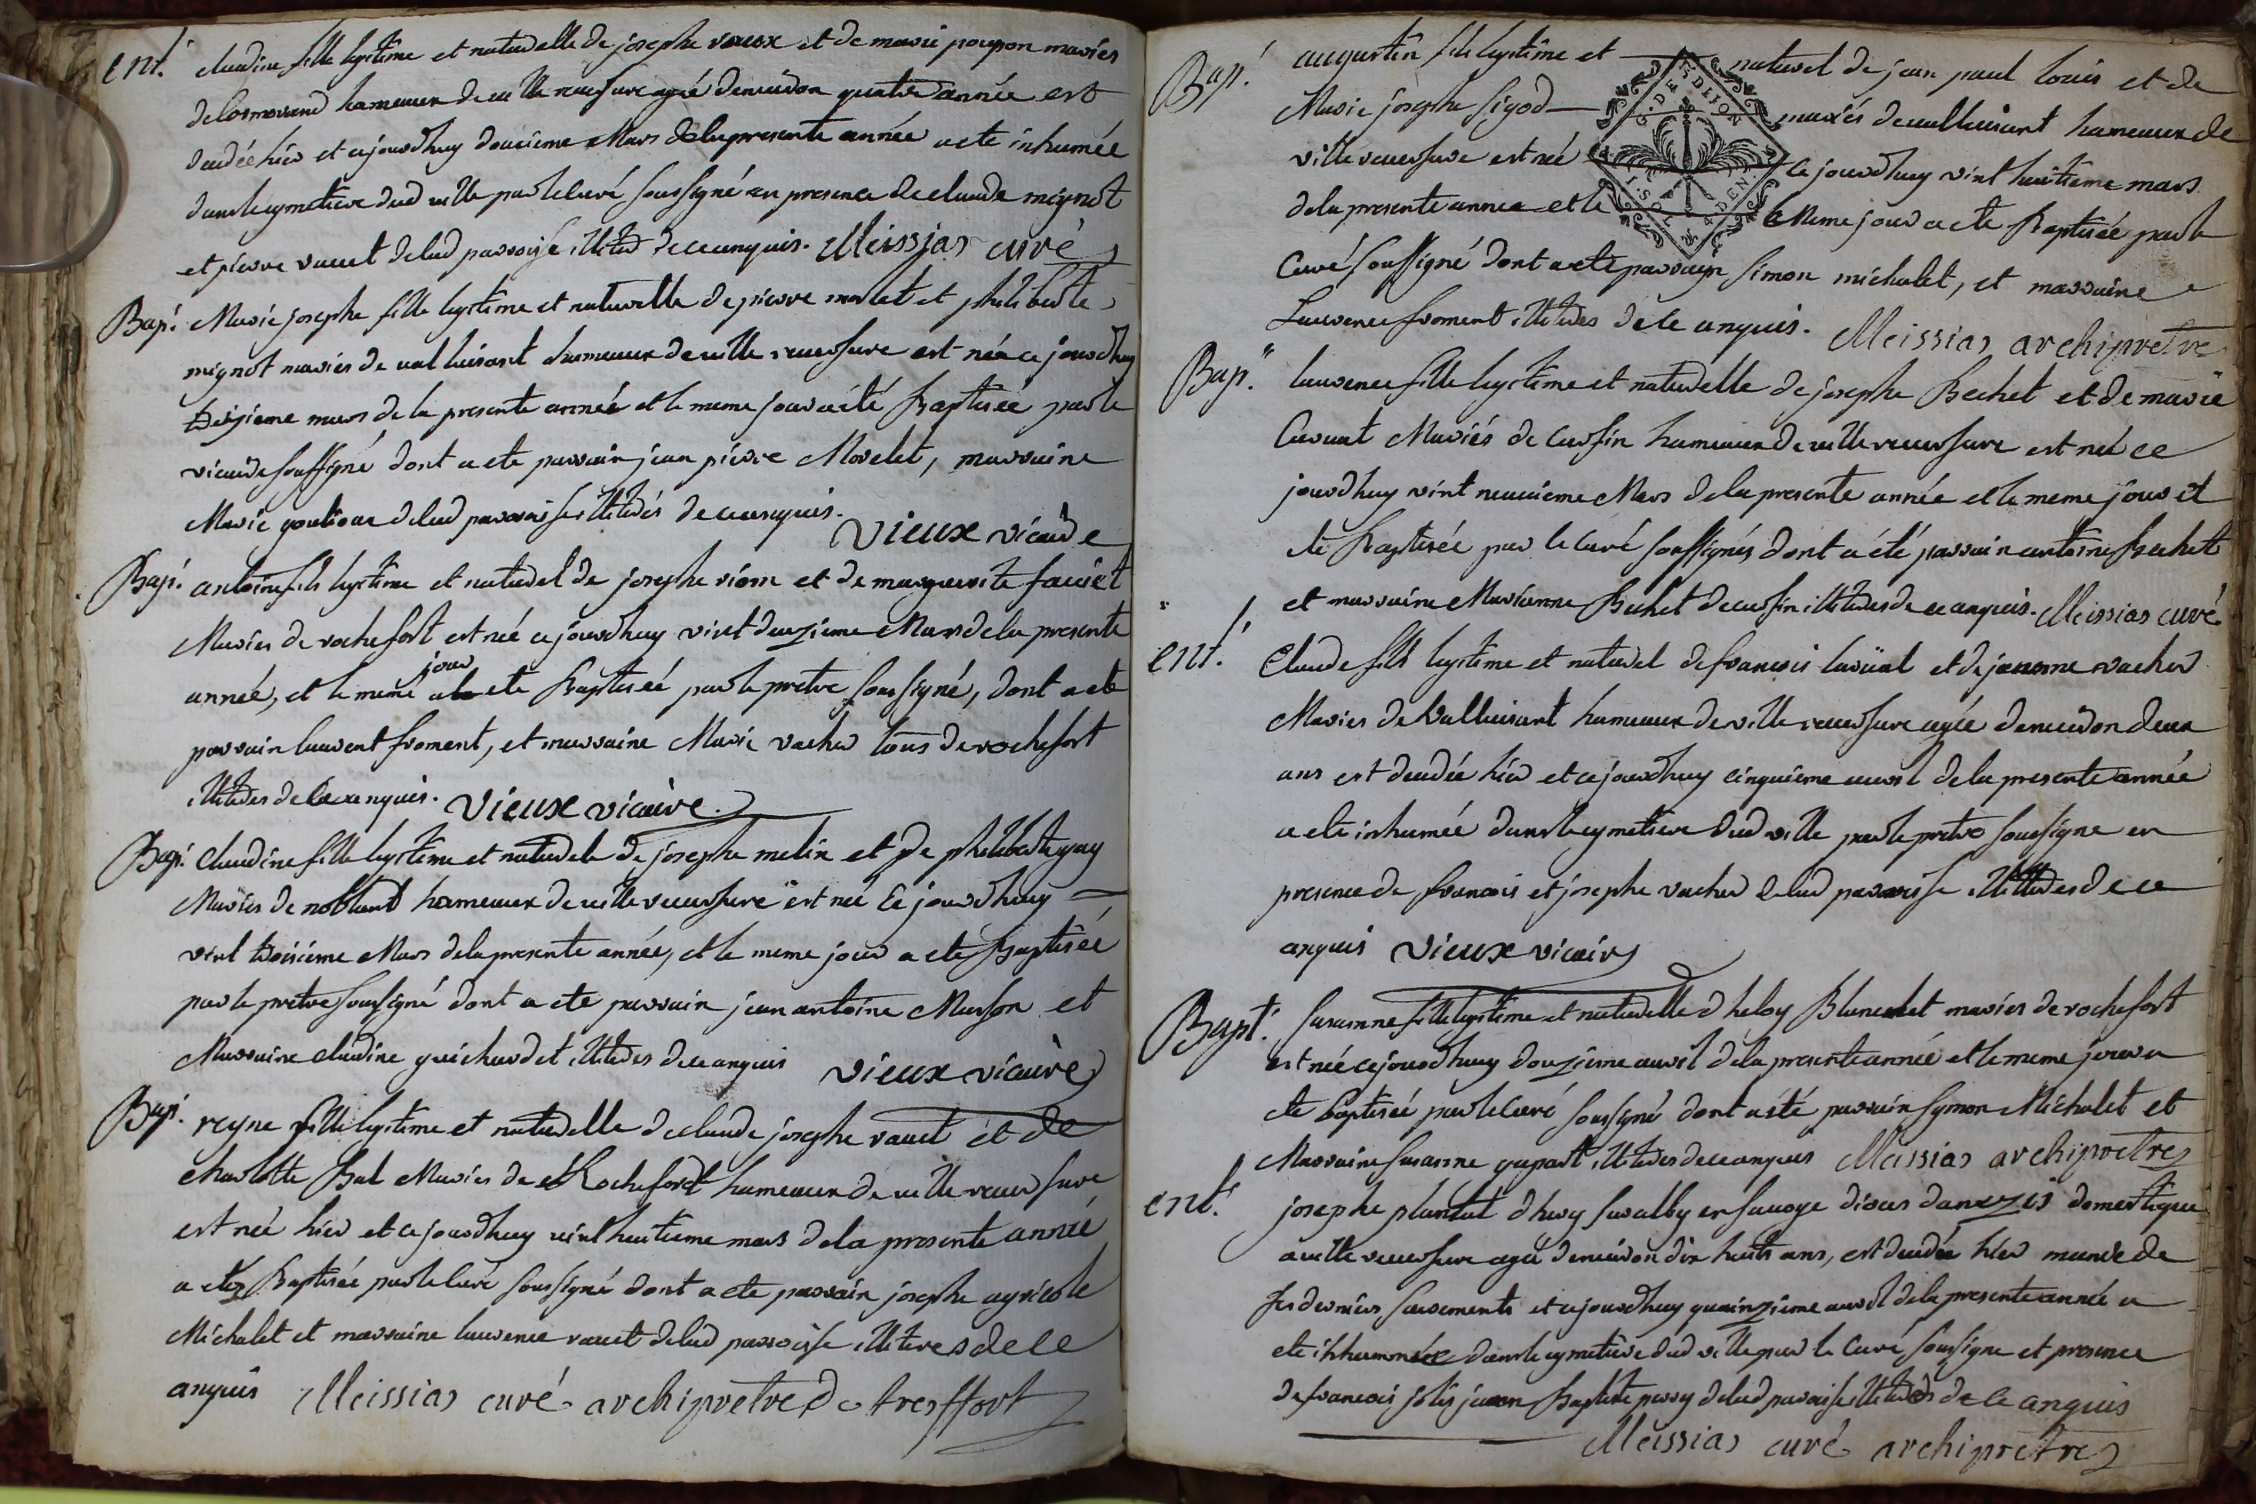 ent. claudine fille legitime et naturelle de joseph vaux et de marie poupon mariés
hameaux de ville reversure agée denviron quatre année est
decedée hier et cejourdhuy douzieme Mars de la presente année a ete inhumée
dans le cymetiere dud ville par le curé soussigné en presence de claude mignot
et pierre vauet delad parroisse illiteres de ce enquis. Meissias curé
Bap. Marie josephe fille legitime et naturelle de pierre morlet et philiberte
mignot mariés de valluisant hameaux de ville reversure est née ce jourdhuy
treizieme mars de la presente année et le meme jour a eté Baptisée par le
vicaire soussigné dont a ete parrain jean pierre Morelet, marraine
Marie delad parroisse illiterés de ce enquis.
vieux vicaire
Bap. antoine fils legitime et naturel de joseph riom et de marguerite
Mariés de rochefort est né ce jourdhuy vint deuzieme Mars de la presente
année, et le meme jour a ete Baptisée par le pretre soussigné, dont a ete
parrain laurent froment, et marraine Marie vacher tous de rochefort
illiteres de ce enquis. vieux vicaire
Bap. claudine fille legitime et naturele de joseph melin et de philiberte guy
Mariés de noblant hameaux de ville reversure est née ce jourdhuy
vint troisieme Mars de la presente année, et le meme jour a eté Baptisée
par le pretre soussigné dont a ete parrain jean antoine Marson et
Marraine claudine guichardet illiteres de ce enquis vieux vicaire
Bap. reyne fille legitime et naturelle de claude joseph vauet et de
charlotte Bal Mariés de Rochefort hameaux de ville reversure
est née hier et ce jourdhuy vint huitieme mars de la presente année
a eté Baptisée par le curé soussigné dont a ete parrain joseph agricole
Michalet et marraine laurence vauet delad parroisse illiteres de ce
anquis Meissias curé archipretre de treffort
Bap. augustin fils legitime et naturel de jean paul louis et de
Marie josephe sigod mariés de valluisant hameaux de
ville reversure est né ce jourdhuy vint huitieme mars
de la presente annee et le meme jour a ete Baptisée par le
curé soussigné dont a ete parrain simon michalet, et marraine
Laurence froment illiteres de ce anquis. Meissias archipretre
G. DE DIJON
Bap. laurence fille legitime et naturelle de joseph Bechet et de marie
Mariés de cursin hameaux de ville reversure est née ce
jourdhuy vint neuvieme Mars de la presente année et le meme jour et
ete Baptisée par le curé soussignés dont a été parrain antoine Bechet
et marraine Marianne Bechet de cursin illiteres de ce anquis. Meissias curé
ent. Claude fils legitime et naturel de francois et de jeanne vacher
Mariés de Valluisant hameaux de ville reversure agée denviron deux
ans est decedée hier et ce jourdhuy cinquieme avril de la presente année
a ete inhumée dans le cymetiere dud ville par le pretre soussigne en
presence de francois et joseph vacher delad parroisse illiteres de ce
anquis vieux vicaire
Bapt. susanne fille legitime et naturelle d heloy Blanchet mariés de rochefort
est née ce jourdhuy douzieme avril de la presente année et le meme jour a
ete baptisée par le curé soussigné dont a été parrain symon Michalet et
Marraine susanne illiteres de ce anquis Meissias archipretre
ent. joseph plantut en savoye domestique
a ville reversure agée denviron dix huits ans, est decedée hier munie de
ses derniers sacrements et ce jourdhuy quinzieme avril de la presente année a
ete inhumée dans le cymetiere dud ville par le Curé soussigne et presence
de francois jean Baptiste delad parroisse illiteres de ce anquis
Meissias curé archipretre